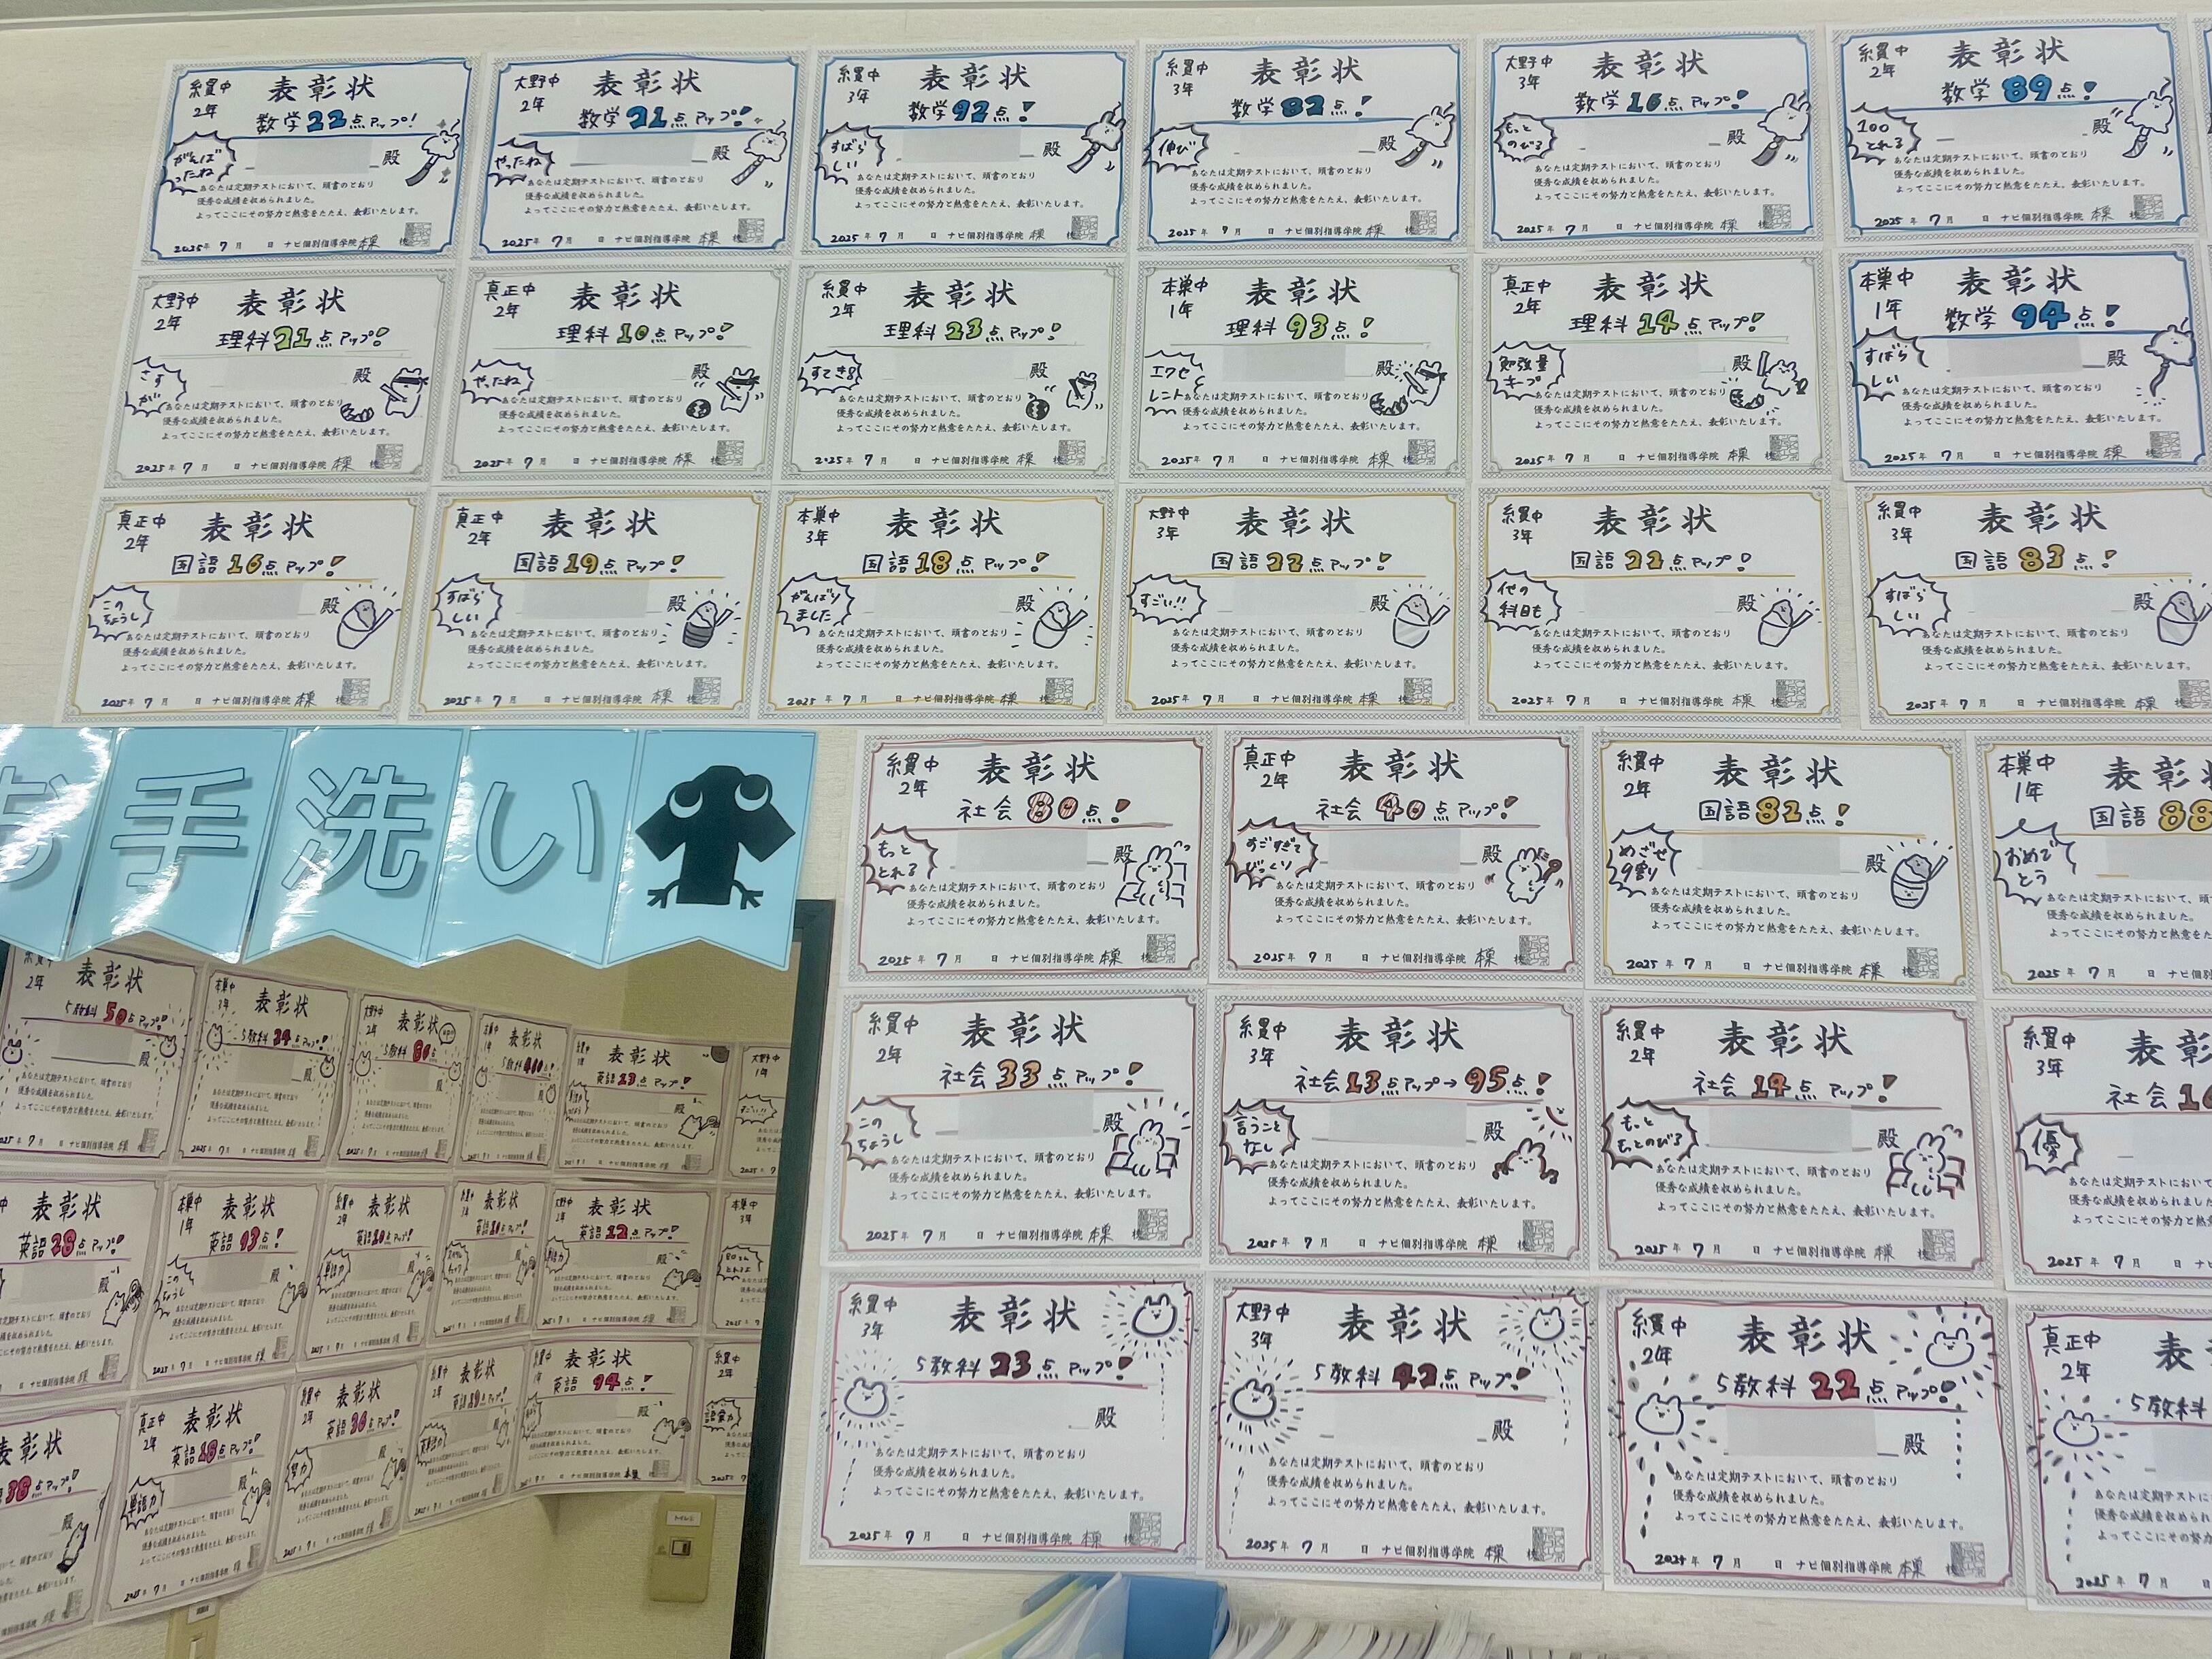 糸貫中
2年
表彰状
数学22点アップ!
がんば
ったね
殿
あなたは定期テストにおいて、頭書のとおり
優秀な成績を収められました。
よってここにその努力と熱意をたたえ、表彰いたします。
2025年 7月 日 ナビ個別指導学院 本巣 校
大野中
2年
表彰状
数学21点アップ!
やったね
殿
あなたは定期テストにおいて、頭書のとおり
優秀な成績を収められました。
よってここにその努力と熱意をたたえ、表彰いたします。
2025年 7月 日 ナビ個別指導学院 本巣 校
糸貫中
3年
表彰状
数学92点!
すばら
しい
殿
あなたは定期テストにおいて、頭書のとおり
優秀な成績を収められました。
よってここにその努力と熱意をたたえ、表彰いたします。
2025年 7月 日 ナビ個別指導学院 本巣 校
糸貫中
3年
表彰状
数学82点!
伸び
殿
あなたは定期テストにおいて、頭書のとおり
優秀な成績を収められました。
よってここにその努力と熱意をたたえ、表彰いたします。
2025年 7月 日 ナビ個別指導学院 本巣 校
大野中
3年
表彰状
数学16点アップ!
もっと
のびる
殿
あなたは定期テストにおいて、頭書のとおり
優秀な成績を収められました。
よってここにその努力と熱意をたたえ、表彰いたします。
2025年 7月 日 ナビ個別指導学院 本巣 校
糸貫中
2年
表彰状
数学89点!
100
とれる
殿
あなたは定期テストにおいて、頭書のとおり
優秀な成績を収められました。
よってここにその努力と熱意をたたえ、表彰いたします。
2025年 7月 日 ナビ個別指導学院 本巣 校
大野中
2年
表彰状
理科21点アップ!
さす
が
殿
あなたは定期テストにおいて、頭書のとおり
優秀な成績を収められました。
よってここにその努力と熱意をたたえ、表彰いたします。
2025年 7月 日 ナビ個別指導学院 本巣 校
真正中
2年
表彰状
理科10点アップ!
やったね
殿
あなたは定期テストにおいて、頭書のとおり
優秀な成績を収められました。
よってここにその努力と熱意をたたえ、表彰いたします。
2025年 7月 日 ナビ個別指導学院 本巣 校
糸貫中
2年
表彰状
理科23点アップ!
すてき
殿
あなたは定期テストにおいて、頭書のとおり
優秀な成績を収められました。
よってここにその努力と熱意をたたえ、表彰いたします。
2025年 7月 日 ナビ個別指導学院 本巣 校
本巣中
1年
表彰状
理科93点!
エクセ
レント
殿
あなたは定期テストにおいて、頭書のとおり
優秀な成績を収められました。
よってここにその努力と熱意をたたえ、表彰いたします。
2025年 7月 日 ナビ個別指導学院 本巣 校
真正中
2年
表彰状
理科14点アップ!
勉強量
キープ
殿
あなたは定期テストにおいて、頭書のとおり
優秀な成績を収められました。
よってここにその努力と熱意をたたえ、表彰いたします。
2025年 7月 日 ナビ個別指導学院 本巣 校
本巣中
1年
表彰状
数学94点!
すばら
しい
殿
あなたは定期テストにおいて、頭書のとおり
優秀な成績を収められました。
よってここにその努力と熱意をたたえ、表彰いたします。
2025年 7月 日 ナビ個別指導学院 本巣 校
真正中
2年
表彰状
国語16点アップ!
この
ちょうし
殿
あなたは定期テストにおいて、頭書のとおり
優秀な成績を収められました。
よってここにその努力と熱意をたたえ、表彰いたします。
2025年 7月 日 ナビ個別指導学院 本巣 校
真正中
2年
表彰状
国語19点アップ!
すばら
しい
殿
あなたは定期テストにおいて、頭書のとおり
優秀な成績を収められました。
よってここにその努力と熱意をたたえ、表彰いたします。
2025年 7月 日 ナビ個別指導学院 本巣 校
本巣中
3年
表彰状
国語18点アップ!
がんばり
ました
殿
あなたは定期テストにおいて、頭書のとおり
優秀な成績を収められました。
よってここにその努力と熱意をたたえ、表彰いたします。
2025年 7月 日 ナビ個別指導学院 本巣 校
大野中
3年
表彰状
国語22点アップ!
すごい!!
殿
あなたは定期テストにおいて、頭書のとおり
優秀な成績を収められました。
よってここにその努力と熱意をたたえ、表彰いたします。
2025年 7月 日 ナビ個別指導学院 本巣 校
糸貫中
3年
表彰状
国語22点アップ!
他の
科目も
殿
あなたは定期テストにおいて、頭書のとおり
優秀な成績を収められました。
よってここにその努力と熱意をたたえ、表彰いたします。
2025年 7月 日 ナビ個別指導学院 本巣 校
糸貫中
3年
表彰状
国語83点!
すばら
しい
殿
あなたは定期テストにおいて、頭書のとおり
優秀な成績を収められました。
よってここにその努力と熱意をたたえ、表彰いたします。
2025年 7月 日 ナビ個別指導学院 本巣 校
お手洗い
糸貫中
2年
表彰状
社会80点!
もっと
とれる
殿
あなたは定期テストにおいて、頭書のとおり
優秀な成績を収められました。
よってここにその努力と熱意をたたえ、表彰いたします。
2025年 7月 日 ナビ個別指導学院 本巣 校
真正中
2年
表彰状
社会40点アップ!
すごすぎて
びっくり
殿
あなたは定期テストにおいて、頭書のとおり
優秀な成績を収められました。
よってここにその努力と熱意をたたえ、表彰いたします。
2025年 7月 日 ナビ個別指導学院 本巣 校
糸貫中
2年
表彰状
国語82点!
めざせ
9割り
殿
あなたは定期テストにおいて、頭書のとおり
優秀な成績を収められました。
よってここにその努力と熱意をたたえ、表彰いたします。
2025年 7月 日 ナビ個別指導学院 本巣 校
本巣中
1年
表彰
国語88
おめで
とう
あなたは定期テスト
優秀な成績を収められました。
よってここにその努力と熱意をたた
2025年 7月 日 ナビ個別
糸貫中
2年
表彰状
社会33点アップ!
この
ちょうし
殿
あなたは定期テストにおいて、頭書のとおり
優秀な成績を収められました。
よってここにその努力と熱意をたたえ、表彰いたします。
2025年 7月 日 ナビ個別指導学院 本巣 校
糸貫中
3年
表彰状
社会13点アップ→95点!
言うこと
なし
殿
あなたは定期テストにおいて、頭書のとおり
優秀な成績を収められました。
よってここにその努力と熱意をたたえ、表彰いたします。
2025年 7月 日 ナビ個別指導学院 本巣 校
糸貫中
2年
表彰状
社会14点アップ!
もっと
もっとのびる
殿
あなたは定期テストにおいて、頭書のとおり
優秀な成績を収められました。
よってここにその努力と熱意をたたえ、表彰いたします。
2025年 7月 日 ナビ個別指導学院 本巣 校
糸貫中
3年
表彰
社会1
優
あなたは定期テスト
優秀な成績を収められ
よってここにその努力と
2025年 7月 日
糸貫中
3年
表彰状
5教科23点アップ!
殿
あなたは定期テストにおいて、頭書のとおり
優秀な成績を収められました。
よってここにその努力と熱意をたたえ、表彰いたします。
2025年 7月 日 ナビ個別指導学院 本巣 校
大野中
3年
表彰状
5教科42点アップ!
殿
あなたは定期テストにおいて、頭書のとおり
優秀な成績を収められました。
よってここにその努力と熱意をたたえ、表彰いたします。
2025年 7月 日 ナビ個別指導学院 本巣 校
糸貫中
2年
表彰状
5教科22点アップ!
殿
あなたは定期テストにおいて、頭書のとおり
優秀な成績を収められました。
よってここにその努力と熱意をたたえ、表彰いたします。
7月 日 ナビ個別指導学院 本巣 校
真正中
2年
表
5教科
あなたは定期テスト
優秀な成績を収められ
よってここにその努
2025年 7月
2年
表彰状
5教科50点アップ!
殿
本巣中
3年
表彰状
5教科24点アップ!
殿
大野中
2年
表彰状
5教科
殿
表彰状
5教科
表彰状
英語23点アップ!
殿
大野中
1年
表彰状
英語28点アップ!
殿
本巣中
1年
表彰状
英語93点!
この
ちょうし
殿
2年
表彰状
英語20点アップ!
単語力
殿
表彰状
大野中
2年
表彰状
英語12点アップ!
殿
本巣中
3年
表彰状
38点アップ!
殿
真正中
2年
表彰状
英語28点アップ!
単語力
殿
2年
表彰状
英語36点アップ!
努力
殿
表彰状
表彰状
英語94点!
殿
糸貫中
2年